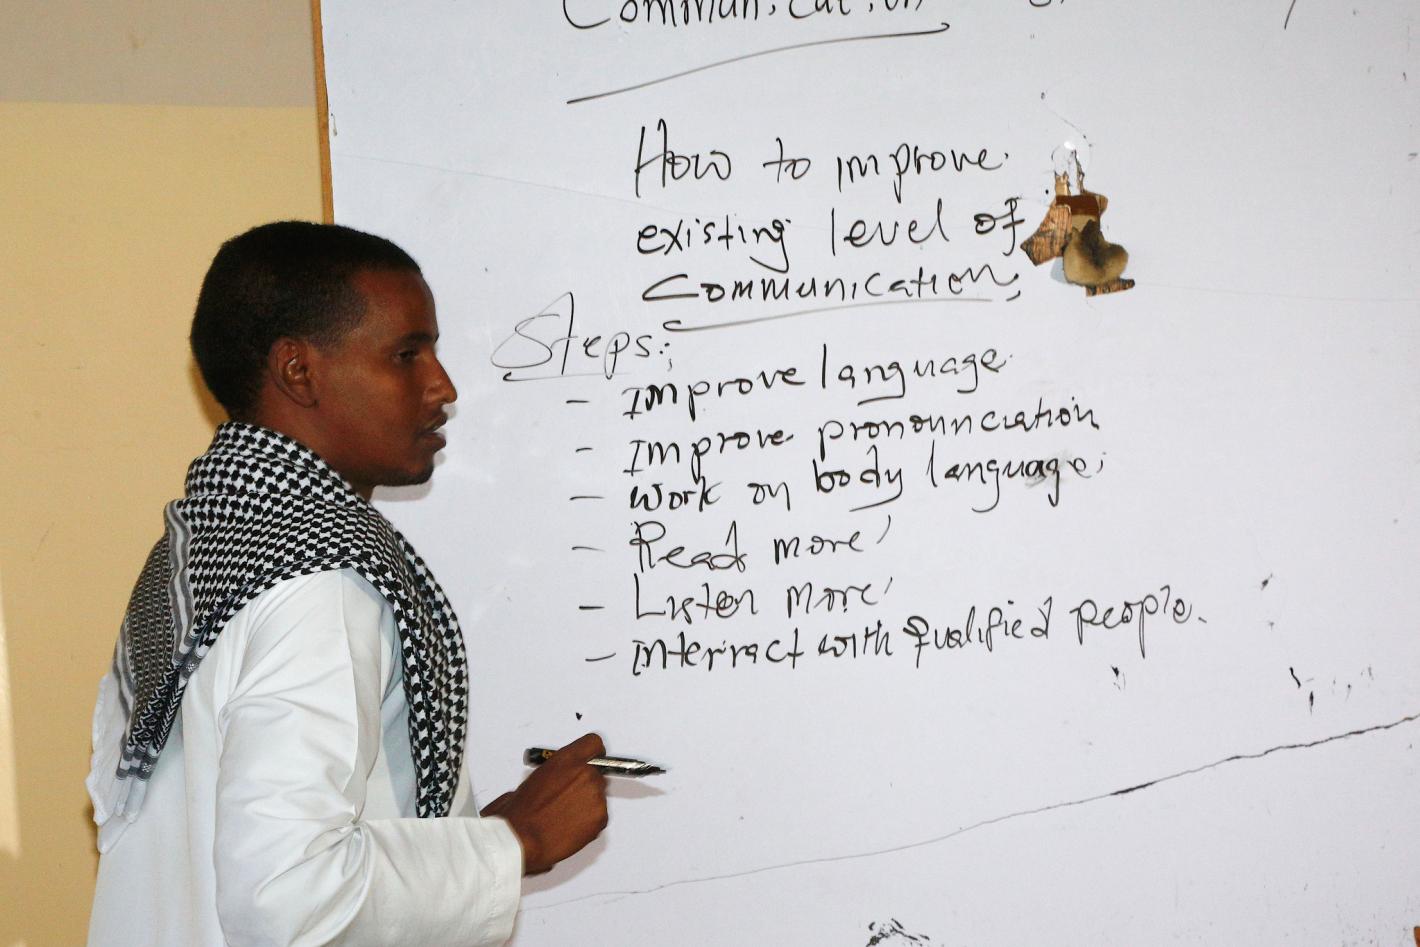 Communication
How to improve
existing level of
Communication;
Steps:;
- Improve language.
- Improve pronounciation
- Work on body language;
- Read more'
- Listen more'
- Interract with qualified people.